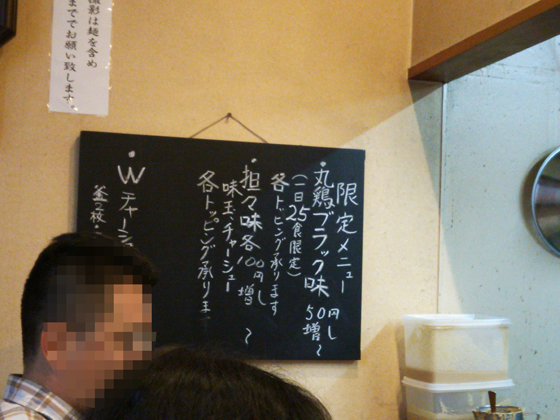 撮影は麺を含め
まででお願い致します。
限定メニュー
・丸鶏ブラック味 50円増し~
(一日25食限定)
各トッピング承ります
・担々味各100円増し~
味玉・チャーシュー
各トッピング承りま
・Wチャーシ
釜2枚・